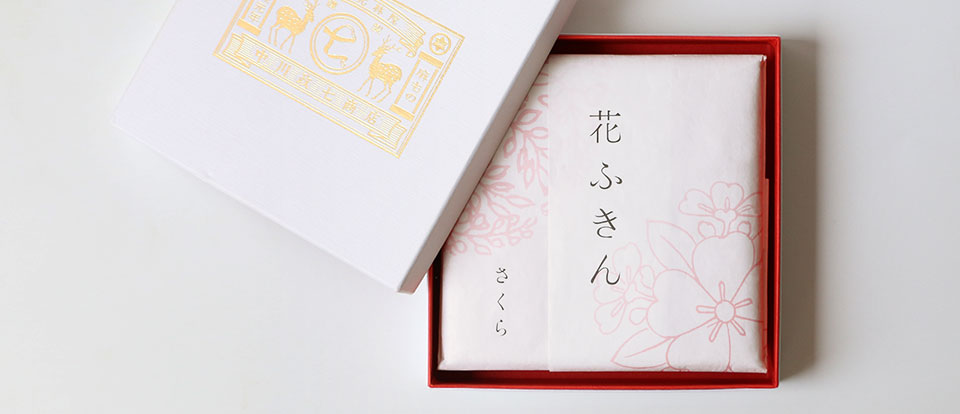 中川政七商店
七
花ふきん
さくら